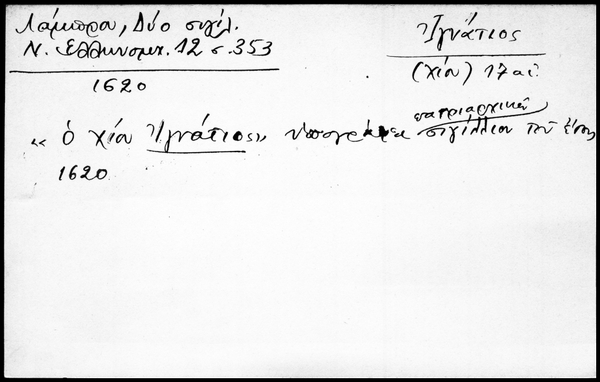 Λάμπρου, Δύο σιγίλ.
Ν. Ελληνομν. 12 σ. 353
1620
Ἰγνάτιος
(Χίου) 17 αἰ.
« ὁ Χίου Ἰγνάτιος » ὑπογράφει πατριαρχικὸν σιγίλλιον τοῦ ἔτους
1620